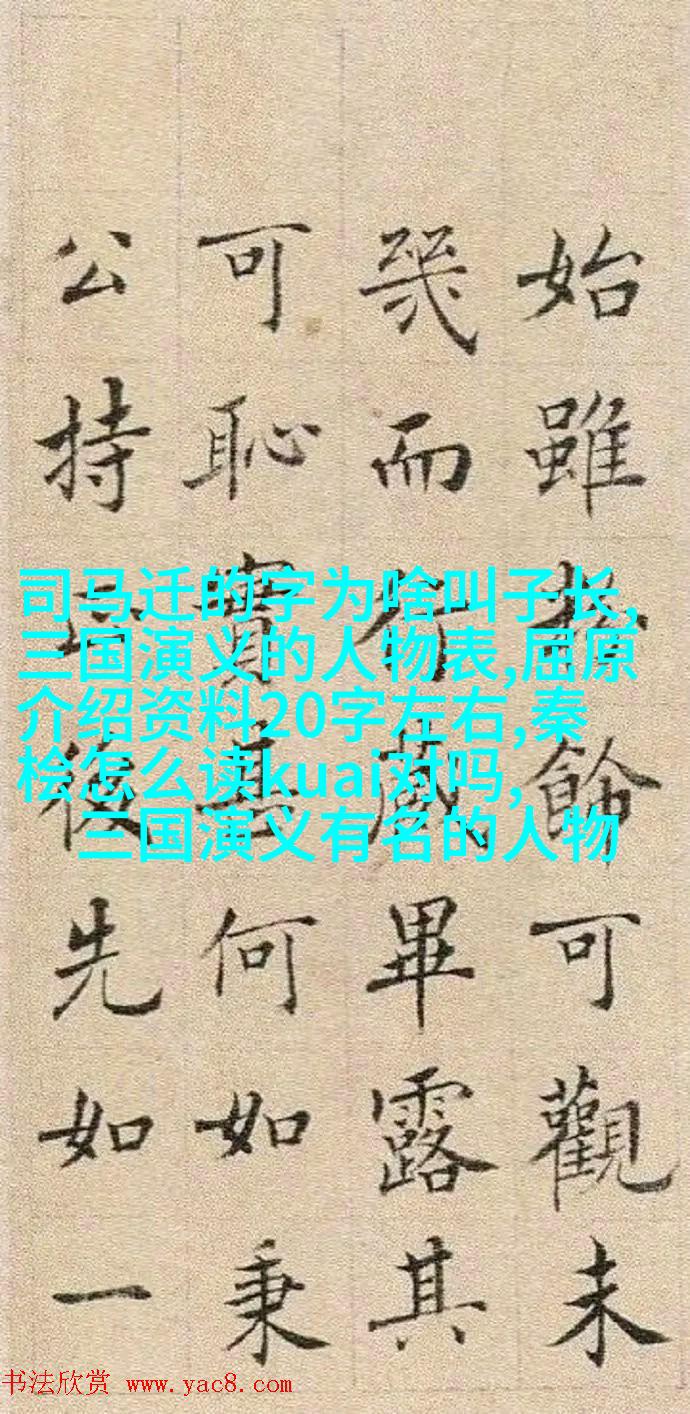 始雖矜飾可觀未
幾而行藏畢露其
可恥實甚何如秉
公持正後先如一
司马迁的字为啥叫子长,
三国演义的人物表,屈原
介绍资料20字左右,秦
桧怎么读kuai对吗,
三国演义有名的人物
书法欣赏 www.yac8.com